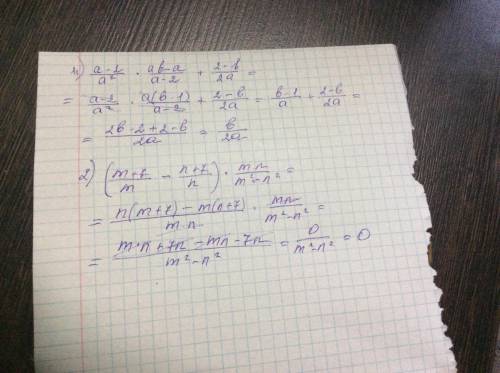 1) (a-2)/a² · (ab-a)/(a-2) + (2-b)/2a =
= (a-2)/a² · a(b-1)/(a-2) + (2-b)/2a = (b-1)/a + (2-b)/2a =
= (2b-2+2-b)/2a = b/2a
2) ((m+7)/m - (n+7)/n) · mn/(m²-n²) =
= (n(m+7) - m(n+7))/(m·n) · mn/(m²-n²) =
= (m·n + 7n - mn - 7n)/(m²-n²) = 0/(m²-n²) = 0